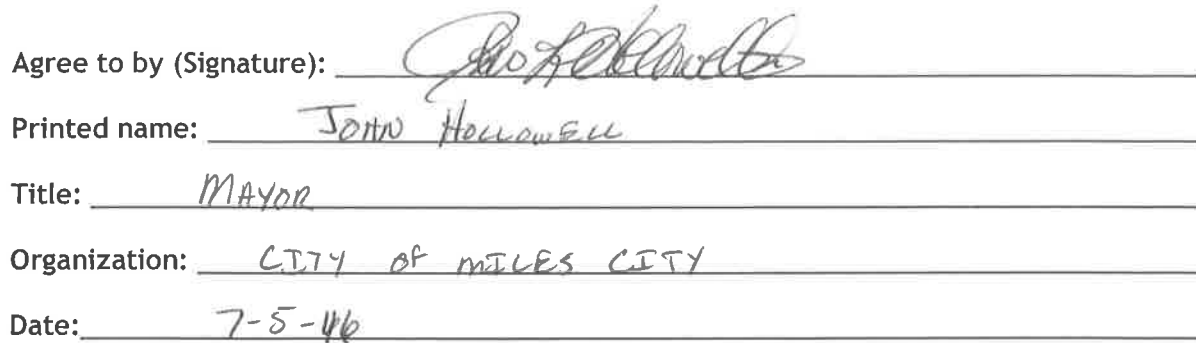 Agree to by (Signature):
Printed name: JOHN HOLLOWELL
Title: MAYOR
Organization: CITY OF MILES CITY
Date: 7-5-